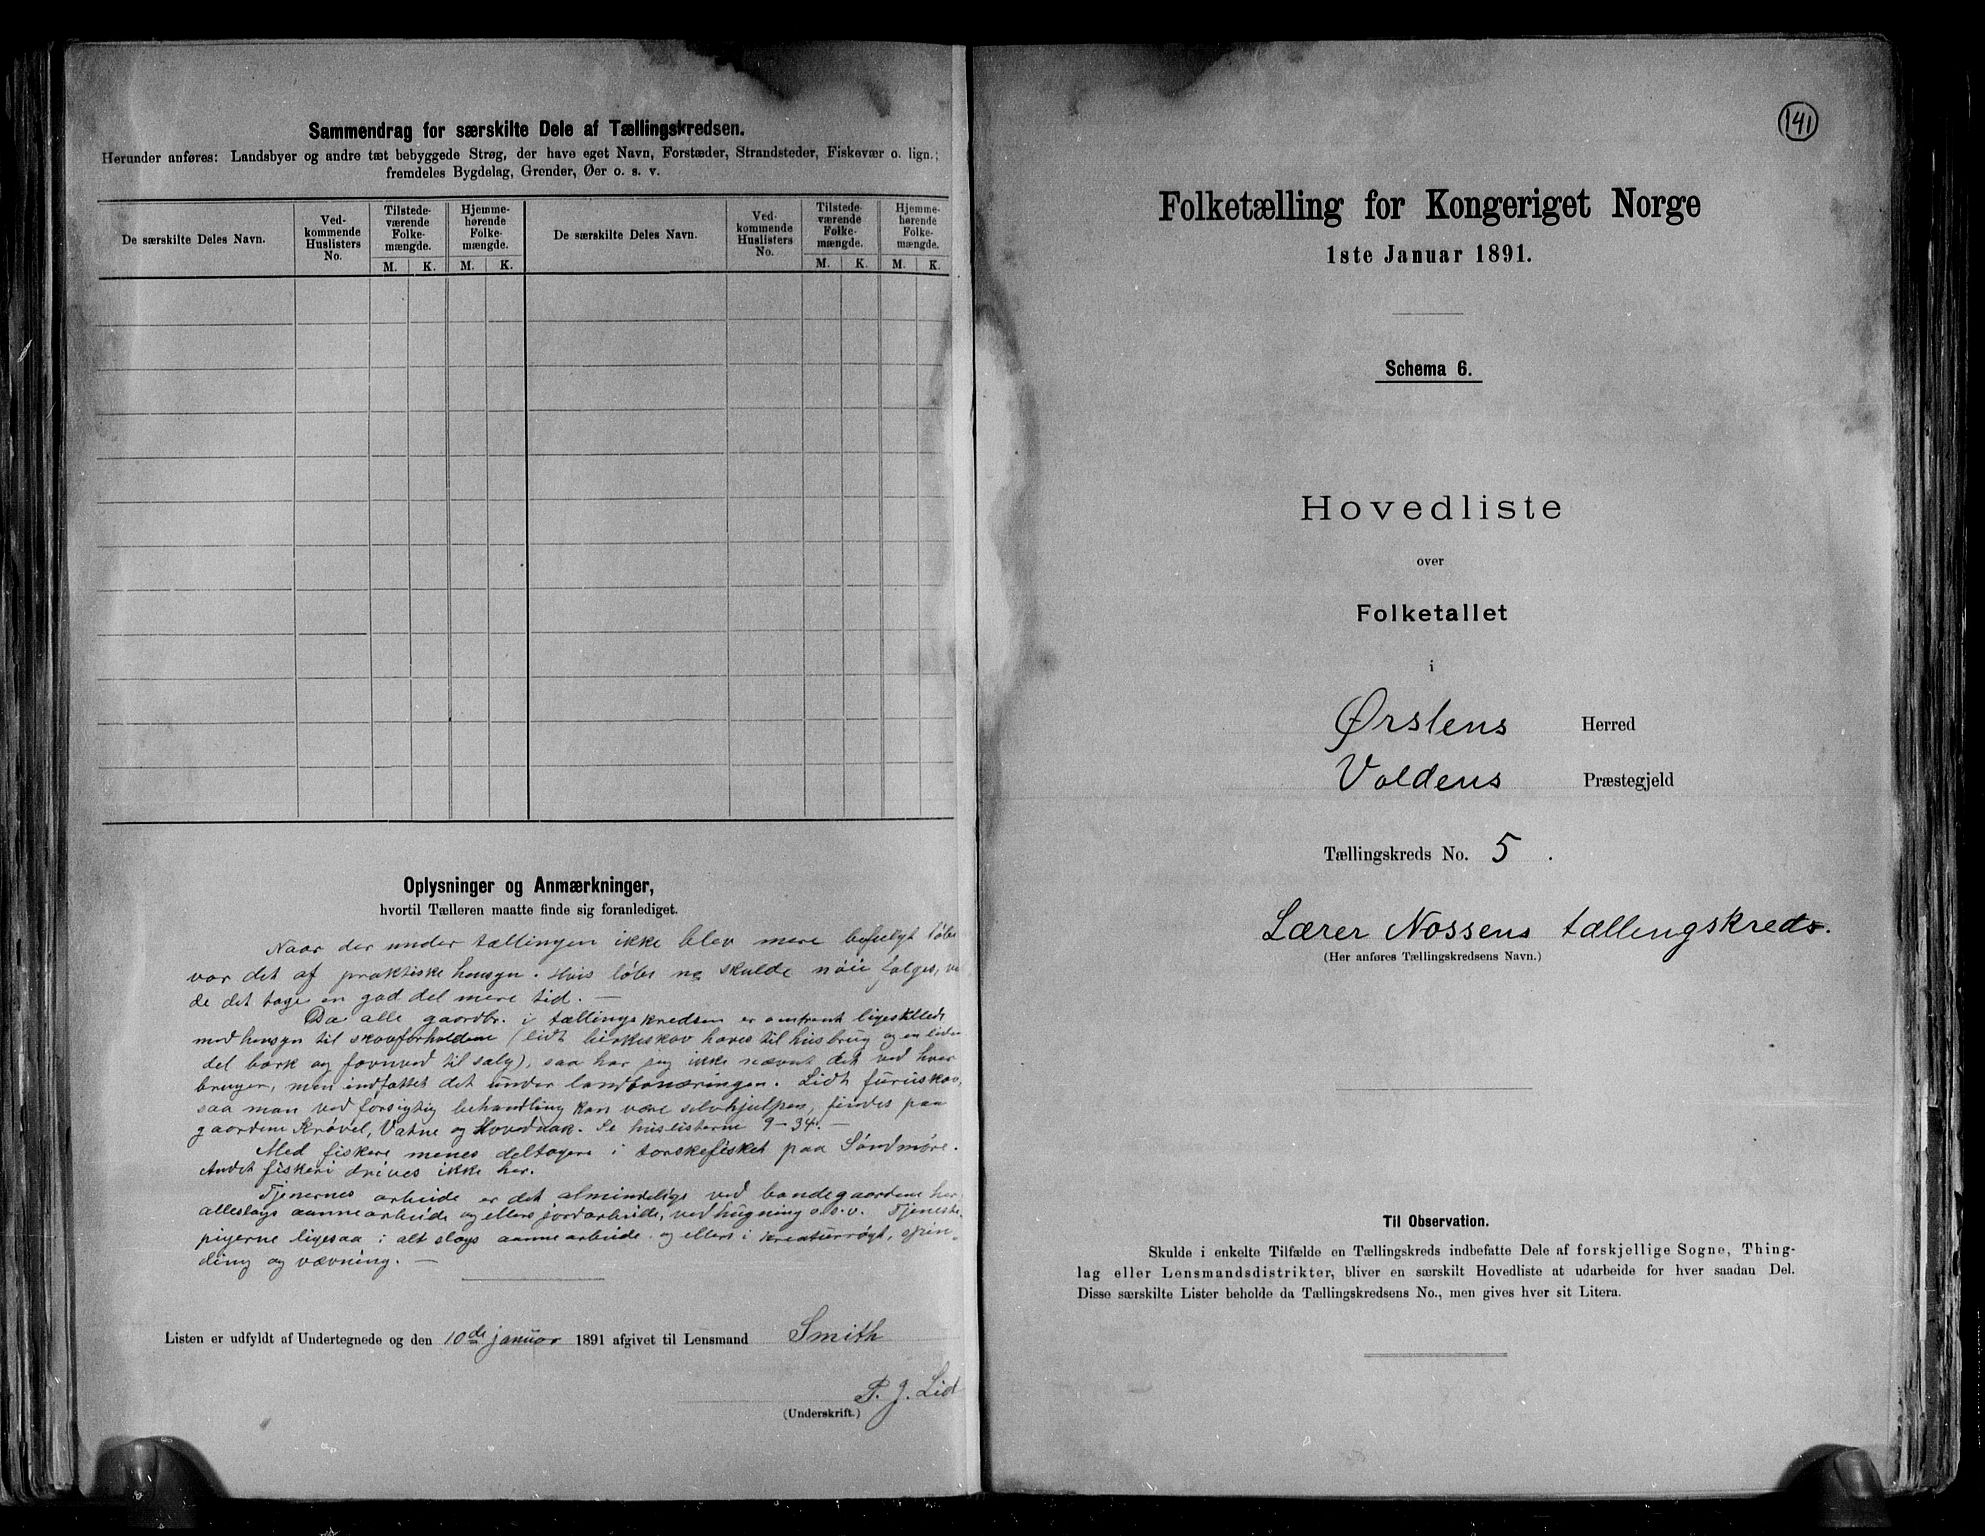 Sammendrag for særskilte Dele af Tællingskredsen.
Herunder anføres: Landsbyer og andre tæt bebyggede Strøg, der have eget Navn, Forstæder, Strandsteder, Fiskevær o. lign.;
fremdeles Bygdelag, Grender, Øer o. s. v.
De særskilte Deles Navn.
Ved-
kommende
Huslisters
No.
Tilstede-
værende
Folke-
mængde.
M. K.
Hjemme-
hørende
Folke-
mængde.
M. K.
De særskilte Deles Navn.
Ved-
kommende
Huslisters
No.
Tilstede-
værende
Folke-
mængde.
M. K.
Hjemme-
hørende
Folke-
mængde.
M. K.
Oplysninger og Anmærkninger,
hvortil Tælleren maatte finde sig foranlediget.
Naar der under tællingen ikke blev mere befulgt
var det af praktiske hensyn. Hvis skulde nöie følges,
de det tage en god del mere tid. —
Da alle gaardbr. i tællingskredsen er omtrent ligestillede
med hensyn til skovforholdene (lidt birkeskov haves til husbrug og en liden
del bark og favnved til salg), saa har jeg ikke nævnt det ved hver
bruger, men indfattet det under landbonæringen. Lidt furuskov,
saa man ved forsigtig behandling kan være selvhjulpen, findes paa
gaardene Krøvel, Vatne og Hovdnak. Se huslisterne 9-34. —
Med fiskere menes deltagere i torskefisket paa Söndmöre.
Andet fiskeri drives ikke her.
Tjenernes arbeide er det almindelige ved bondegaardene her,
alleslags aannearbeide og ellers jordarbeide, vedhugning o.s.v. Tjeneste-
pigerne ligesaa i alt slags aannearbeide og ellers i kreaturrögt, spin-
ding og vævning. —
Listen er udfyldt af Undertegnede og den 10de januar 1891 afgivet til Lensmand Smith
P. J. Lid
(Underskrift.)
141
Folketælling for Kongeriget Norge
1ste Januar 1891.
Schema 6.
Hovedliste
over
Folketallet
i
Ørstens Herred
Voldens Præstegjeld
Tællingskreds No. 5.
Lærer Nossens tællingskreds.
(Her anføres Tællingskredsens Navn.)
Til Observation.
Skulde i enkelte Tilfælde en Tællingskreds indbefatte Dele af forskjellige Sogne, Thing-
lag eller Lensmandsdistrikter, bliver en særskilt Hovedliste at udarbeide for hver saadan Del.
Disse særskilte Lister beholde da Tællingskredsens No., men gives hver sit Litera.